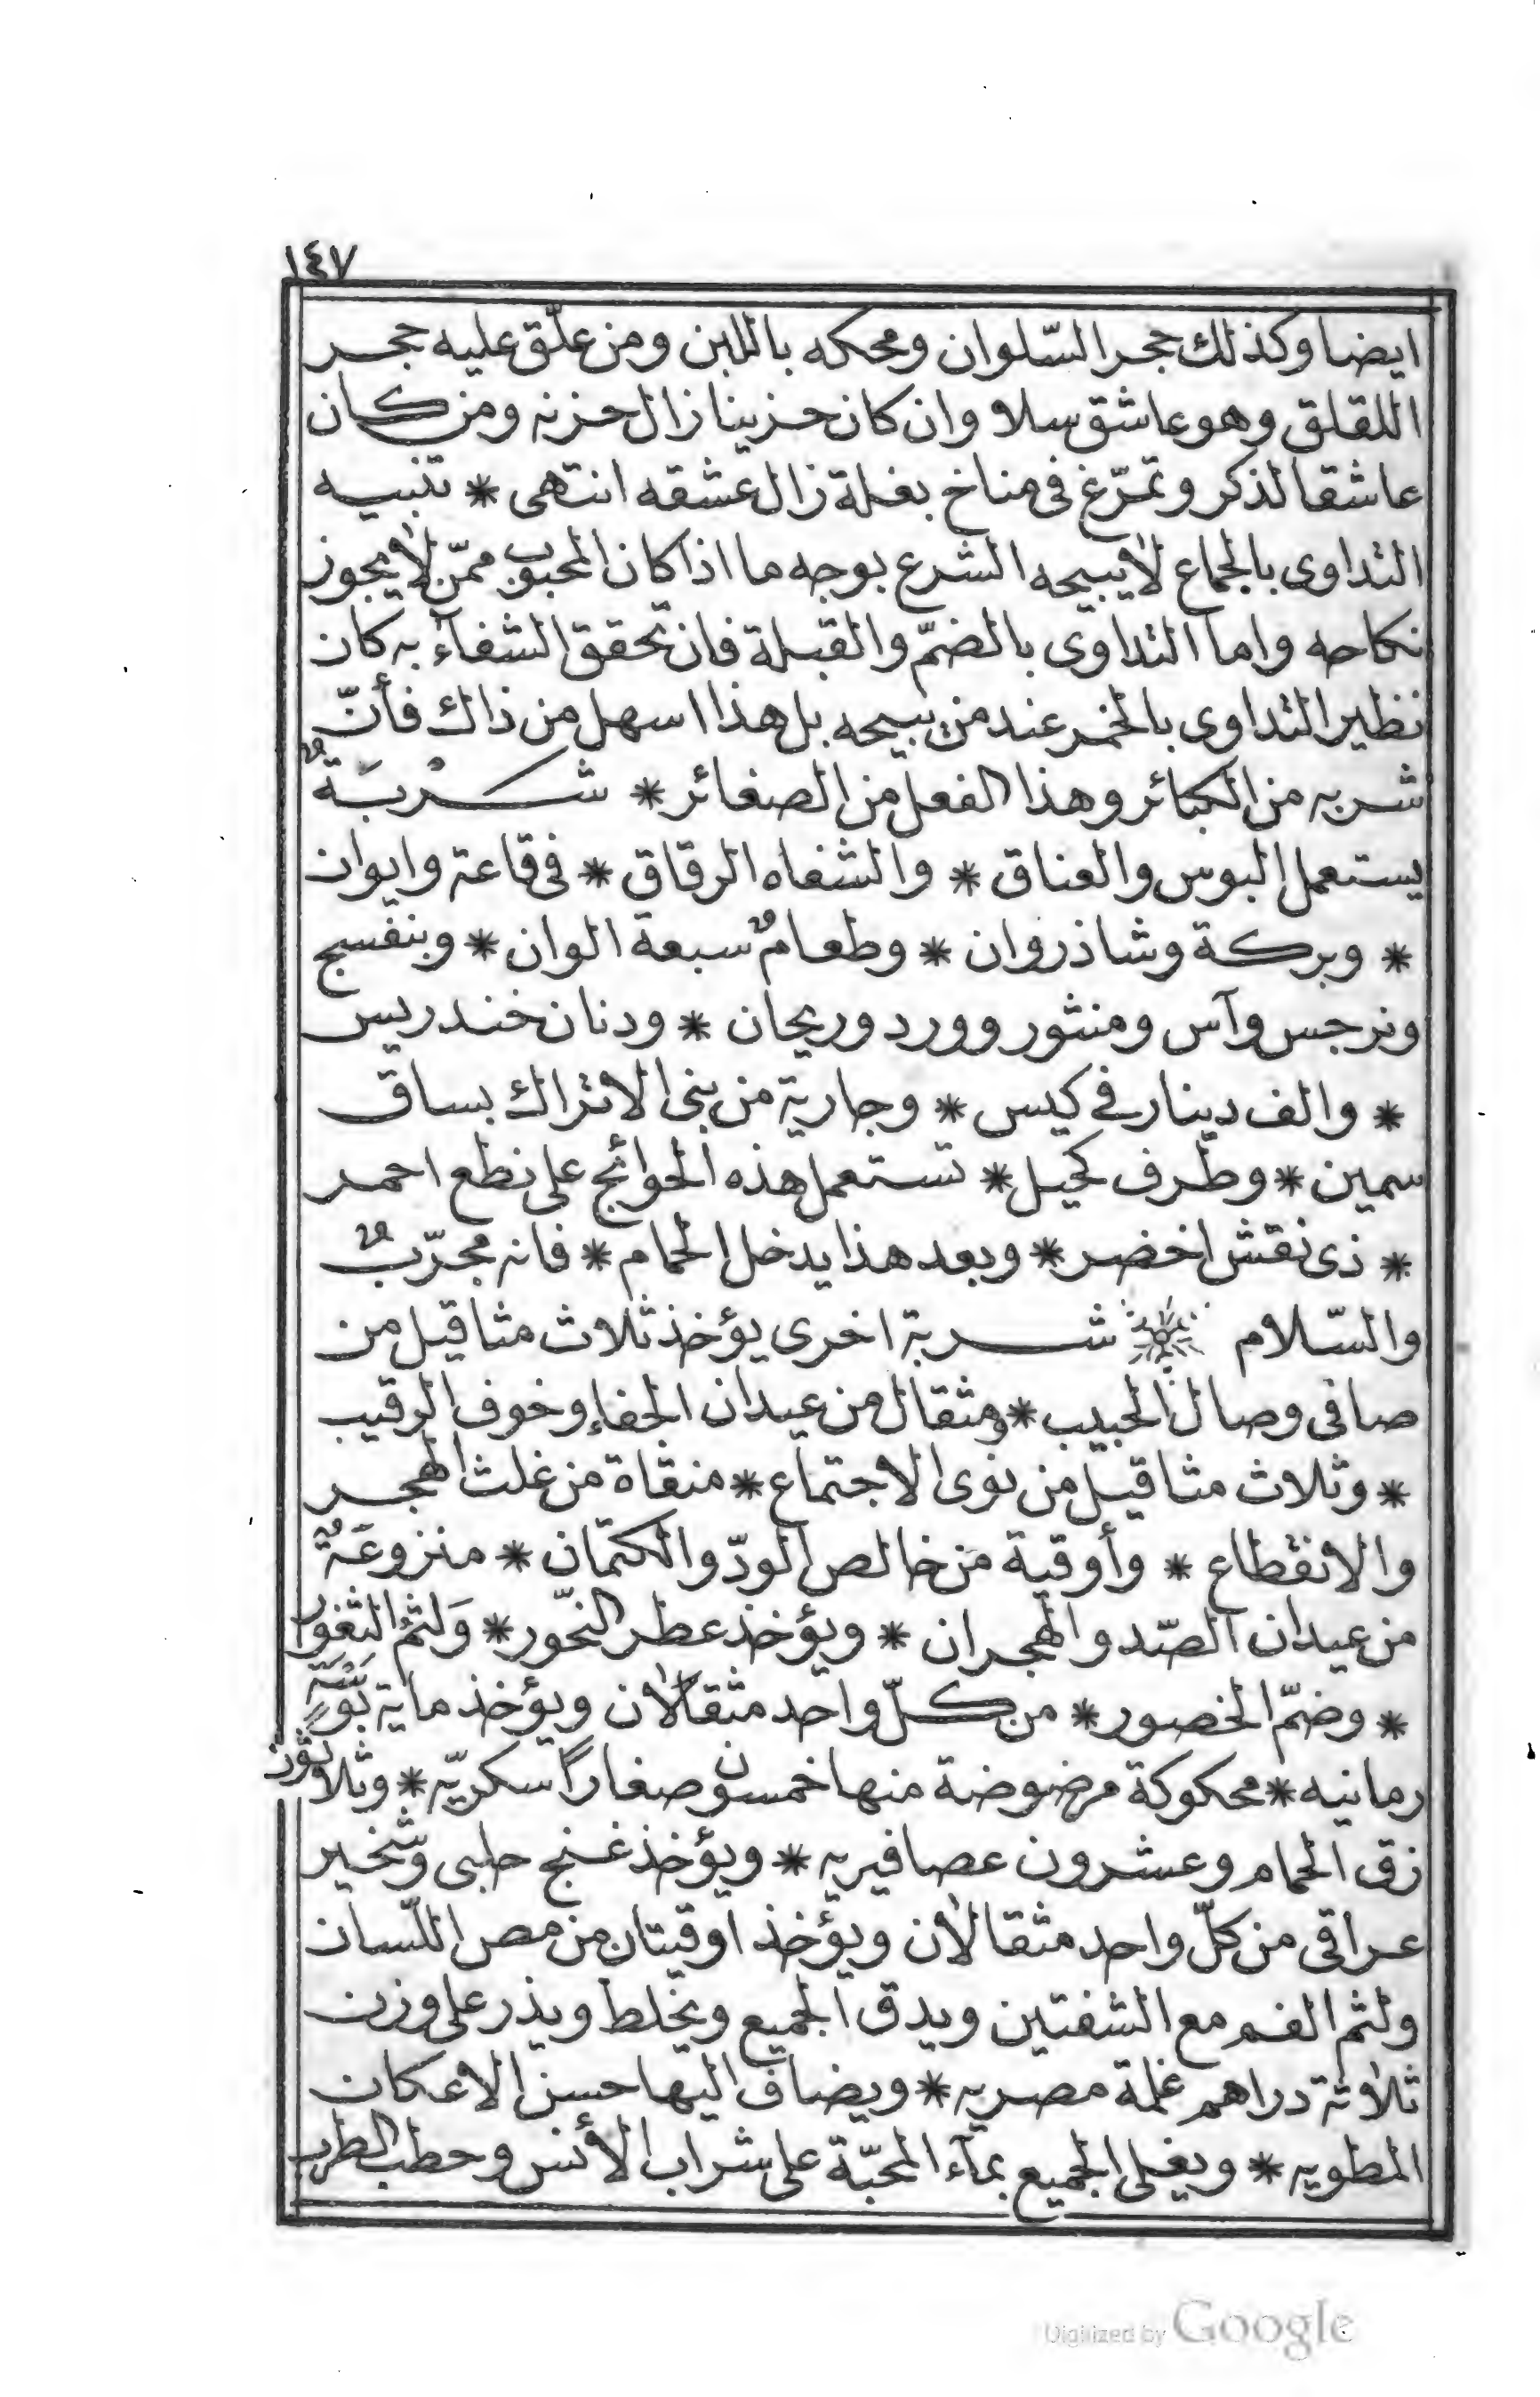 ١٤٧
ايضا وكذلك حجر السّلوان ومحكه باللبن ومن علّق عليه حجر
اللقلق وهو عاشق سلا وان كان حزينا زال حزنه ومن كان
عاشقا لذكر وتمرّغ فى مناخ بغلة زال عشقه انتهى * تنبيه
التداوى بالجماع لا يبيحه الشرع بوجه ما اذا كان المحبوب ممّن لا يجوز
نكاحه واما التداوى بالضمّ والقبلة فان تحقق الشفآء به كان
نظير التداوى بالخمر عند من يبيحه بل هذا اسهل من ذاك فأنّ
شربه من الكبائر وهذا الفعل من الصغائر * شربةٌ
يستعمل البوس والعناق * والشفاه الرقاق * فى قاعة وايوان
* وبركة وشاذروان * وطعامٌ سبعة الوان * وبنفسج
ونرجس وآس ومنثور وورد وريحان * ودنان خندريس
* والف دينار في كيس * وجارية من بنى الاتراك بساق
سمين * وطرف كحيل * تستعمل هذه الحوائج على نطع احمر
* ذى نقش اخضر * وبعد هذا يدخل الحمام * فانه مجرّبٌ
والسّلام شربة اخرى يؤخذ ثلاث مثاقيل من
صافى وصال الحبيب * ومثقال من عيدان الجفاء وخوف الرقيب
* وثلاث مثاقيل من نوى الاجتماع * منقاة من غلث الهجر
والانقطاع * وأوقية من خالص الودّ والكتمان * منزوعةٌ
من عيدان الصّد والهجران * ويؤخذ عطر النّحور * وَلثمُ الثغور
* وضمّ الخصور * من كلّ واحد مثقالان ويؤخذ ماية بَوسَةٍ
رمانيه * محكوكة مرضوضة منها خمسون صغاراً سكريّه * وثلاثون
زق الحمام وعشرون عصافيريه * ويؤخذ غنج حلبى وشخير
عراقى من كلّ واحد مثقالان ويؤخذ اوقيتان من مص اللّسان
ولثم الفم مع الشفتين ويدق الجميع ويخلط ويذر على وزن
ثلاثة دراهم غلمة مصريه * ويضاف اليها حسن الاعكان
المطويه * ويغلى الجميع بمآء المحبّة على شراب الأنس وحطب الطرب
Digitized by Google